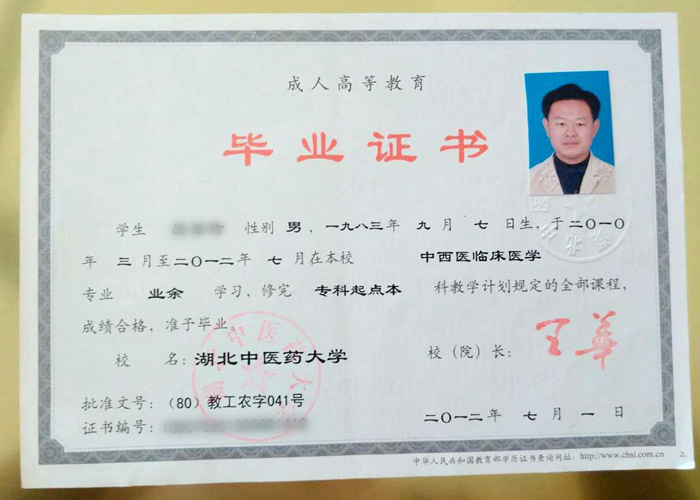 成人高等教育
毕业证书
学生 性别 男，一九八三年 九 月 七 日生，于二〇一〇
年 三 月至二〇一二年 七 月在本校 中西医临床医学
专业 业余 学习，修完 专科起点本 科教学计划规定的全部课程，
成绩合格，准予毕业。
校 名：湖北中医药大学 校（院）长：王華
批准文号：（80）教工农字041号
证书编号：
二〇一二年 七 月 一 日
中华人民共和国教育部学历证书查询网址：http://www.chsi.com.cn